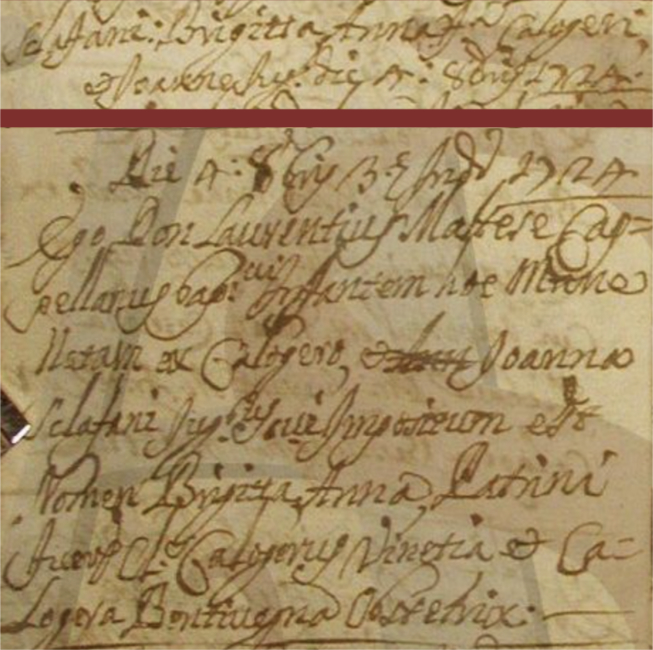 Sclafani: Brigitta Anna f.a Calogeri,
et Joannæ Jug: die 4: 8bris 1724.
Die 4: 8bris 3.ę Ind. 1724
Ego Don Laurentius Maltese Cap=
pellanus bap.vi Infantem hoc Mane
Natam ex Calogero, et Joanna
Sclafani Jug: Cui Impositum est
Nomen Brigitta, Anna, Patrini
fuerūt Cl. Calogerus Vinetia et Ca=
logera Bentivegna Obstetrix.